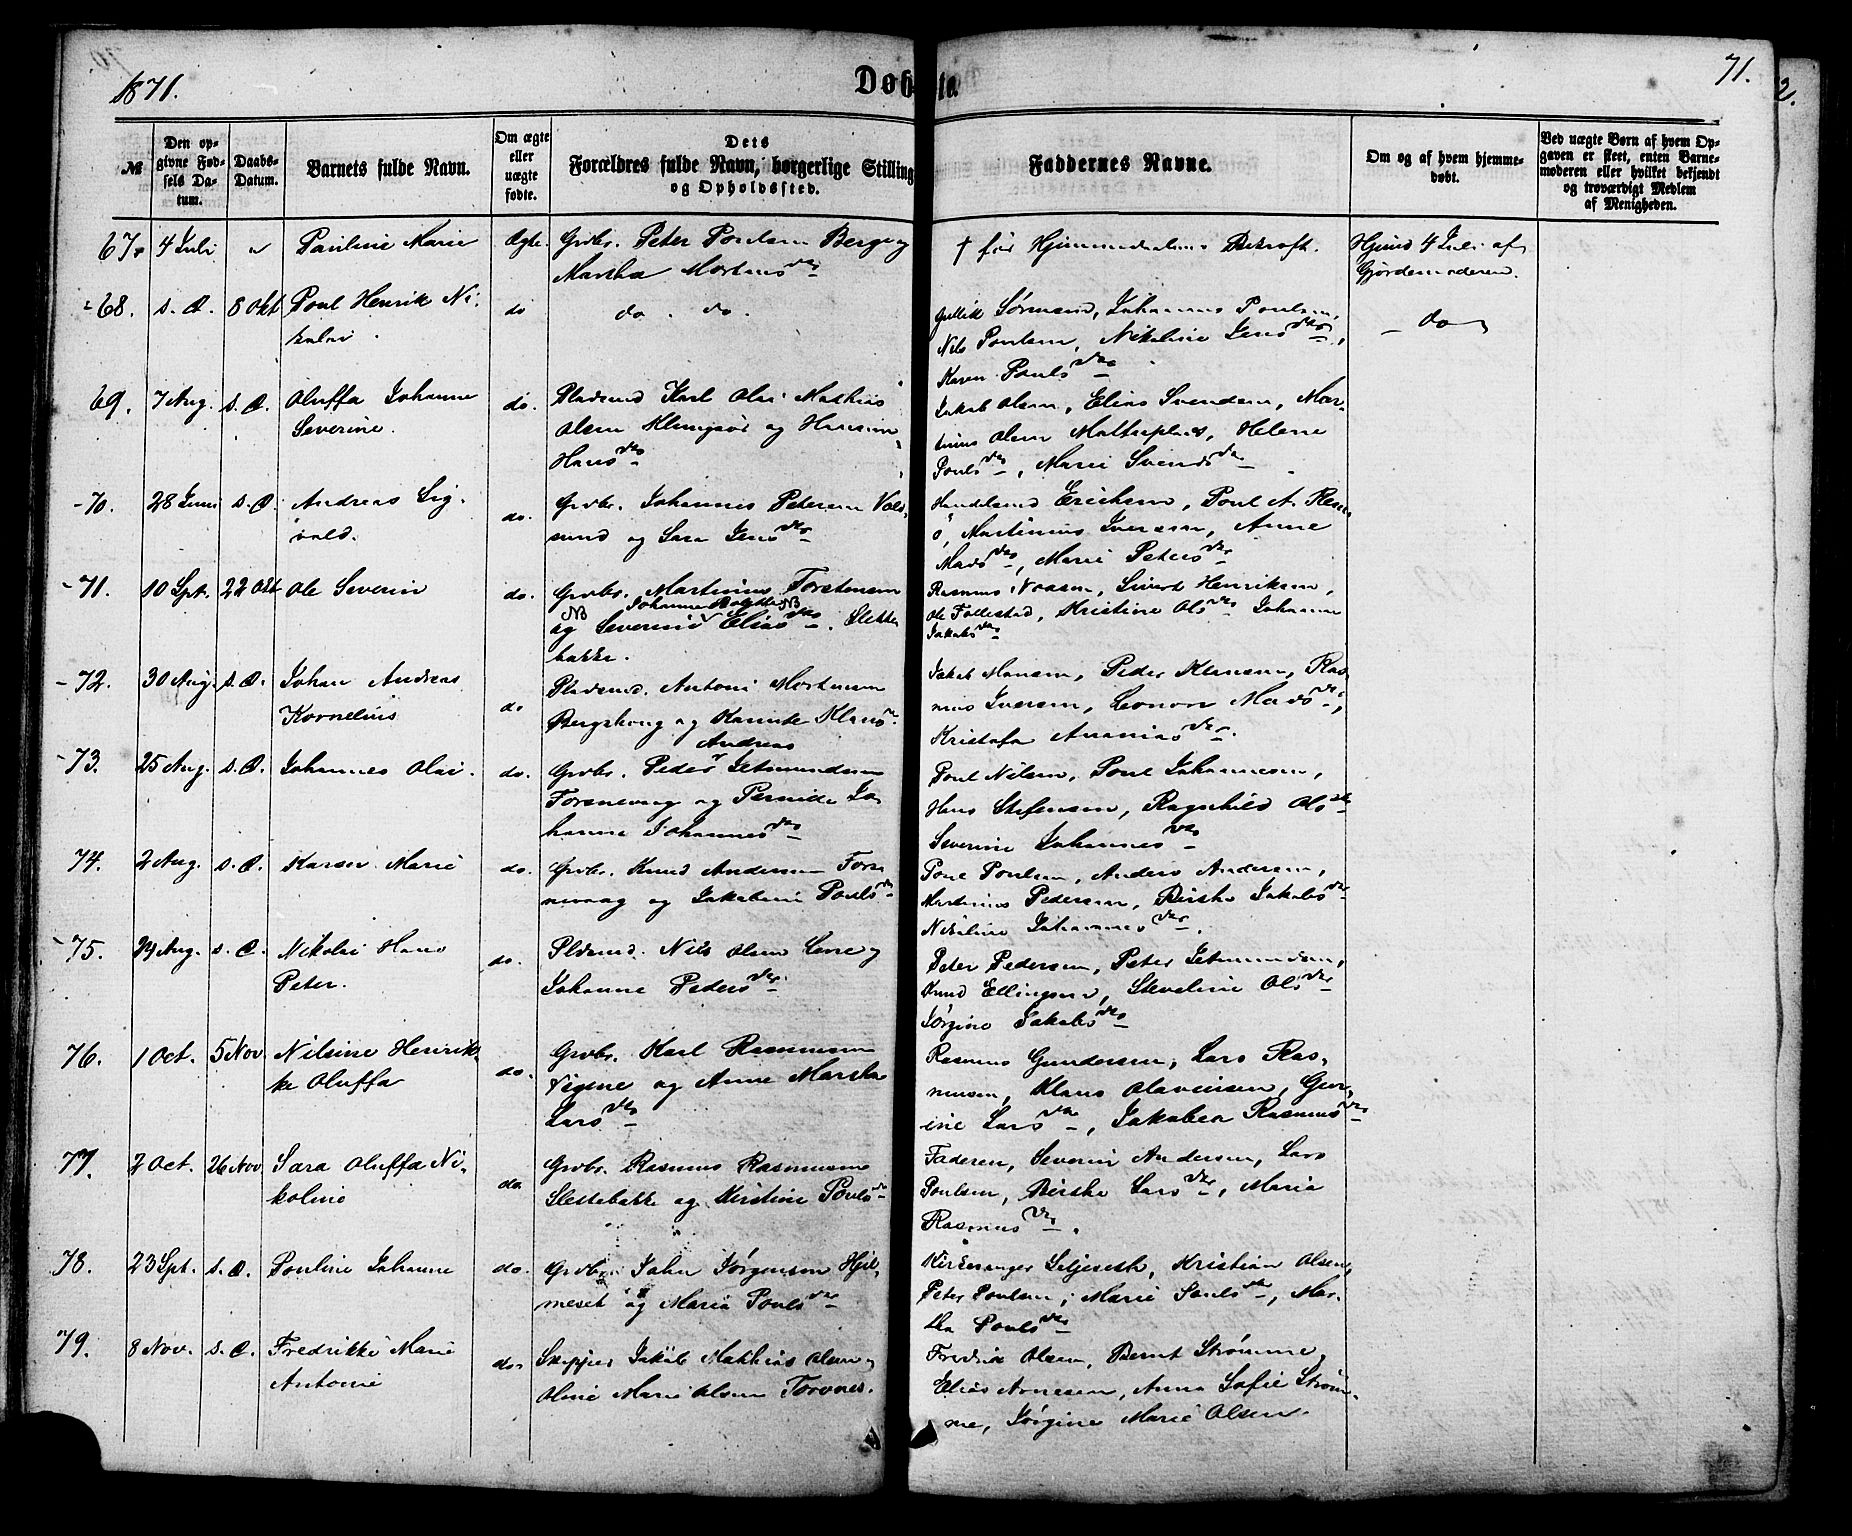 1871.
Døbte.
71.
2.
№
Den opgivne Fødsels Datum.
Daabs-Datum.
Barnets fulde Navn.
Om ægte eller uægte fødte.
Dets Forældres fulde Navn, borgerlige Stilling og Opholdssted.
Faddernes Navne.
Om og af hvem hjemmedøbt.
Ved uægte Børn af hvem Opgaven er skeet, enten Barnemoderen eller hvilket bekjendt og troværdigt Medlem af Menigheden.
67. 4 Juli Pauline Marie Ægte. Grbr. Peter Poulsen Berge og
Martha Mortensd.
† før Hjemmedaabens Bekræft.
Hjemd 4 Juli af
Gjordemoderen.
68. s. A. 8 Okt Poul Henrik Ni-
kolai.
do do. do.
Johannes Poulsen,
Nils Poulsen, Nikoline Jensd.,
Karen Poulsd.
do
69. 7 Aug. s. A. Oluffa Johanne
Severine.
do. Pladsmd Karl Olai Mathias
Olsen Klungsør og
Hansd.
Jakob Olsen, Elias Svendsen, Mar-
tinus Olsen, Helene
Poulsd., Marie Svendsd.
70. 28 Juni s. A. Andreas Sig-
vald.
do. Grbr. Johannes Petersen Vold-
sund og Sara Jensd.
Handelsmd Eriksen, Poul A. Rem-
ø, Martinus Iversen, Anne
Madsd., Marie Petersd.
71. 10 Spt. 22 Okt Ole Severin
do. Grbr. Martinus Torstensen
NB Johanne NB
og Severine Eliasd. Slette-
bakke.
Rasmus Noasen, Sivert Henriksen,
Ole Follestad, Kristine Olsd. Johanne
Jakobsd.
72. 30 Aug. s. A. Johan Andreas
Kornelius
do Pladsmd. Antoni Mortensen
Bergshoug og Karnite Klausd.
Jakob Monsen, Peder Klausen, Ras-
mus Iversen, Leonor Madsd.,
Kristofa Ananiasd.
73. 25 Aug. s. A. Johannes Olai.
Andreas
do. Grbr. Peder Getmundsen
Torsnevaag og Pernille Jo-
hanne Johannesd.
Poul Nilsen, Poul Johannesen,
Hans Stefensen, Ragnhild Olsd.
Severine Johannesd.
74. 2 Aug. s. A. Karen Marie
do. Grbr. Knud Andersen Tors-
nevaag og Jakobine Poulsd.
Poul Poulsen, Anders Andersen,
Martinus Pedersen, Birthe Jakobsd.
Nikoline Johannesd.
75. 29 Aug. s. A. Nikolai Hans
Peter.
do. Pladsmd. Nils Olsen Leine og
Johanne Pedersd.
Peter Pedersen, Peter Getmundsen,
Knud Ellingsen, Steveline Olsd.
Jørgine Jakobsd.
76. 1 Oct. 5 Nov. Nilsine Henrik-
ke Oluffa
do. Grbr. Karl Rasmussen
Vigene og Anne Martha
Larsd.
Rasmus Gundersen, Lars Ras-
mussen, Klaus Olavensen, Gur-
ine Larsd., Jakobea Rasmusd.
77. 2 Oct. 26 Nov. Sara Oluffa Ni-
koline
do. Grbr. Rasmus Rasmussen
Slettebakke og Kristine Poulsd.
Faderen, Severin Andersen, Lars
Poulsen, Birthe Larsd., Maria
Rasmusd.
78. 23 Spt. s. A. Pouline Johanne
do. Grbr. John Jørgensen Hjel-
meset og Maria Poulsd.
Kirkesanger Seljeseth, Kristian Olsen,
Peter Poulsen, Marie Poulsd., Mar-
tha Poulsd.
79. 8 Nov. s. A. Fredrikke Marie
Antonie
do. Skipper Jakob Mathias Olsen og
Oline Marie Olsen Torvnes.
Fredrik Olsen, Bernt Strømme,
Elias Arnesen, Anna Sofie Strøm-
me, Jørgine Marie Olsen.